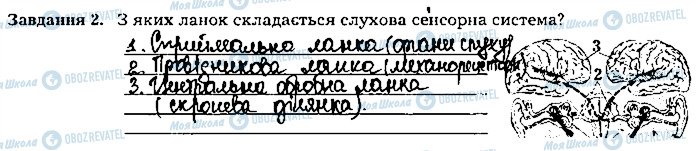 Завдання 2. З яких ланок складається слухова сенсорна система?
1. Сприймальна ланка (органи слуху)
2. Провідникова ланка (механорецептори)
3. Центральна обробна ланка
(скронева ділянка)
3
2
1
Моя Школа OBOZREVATEL